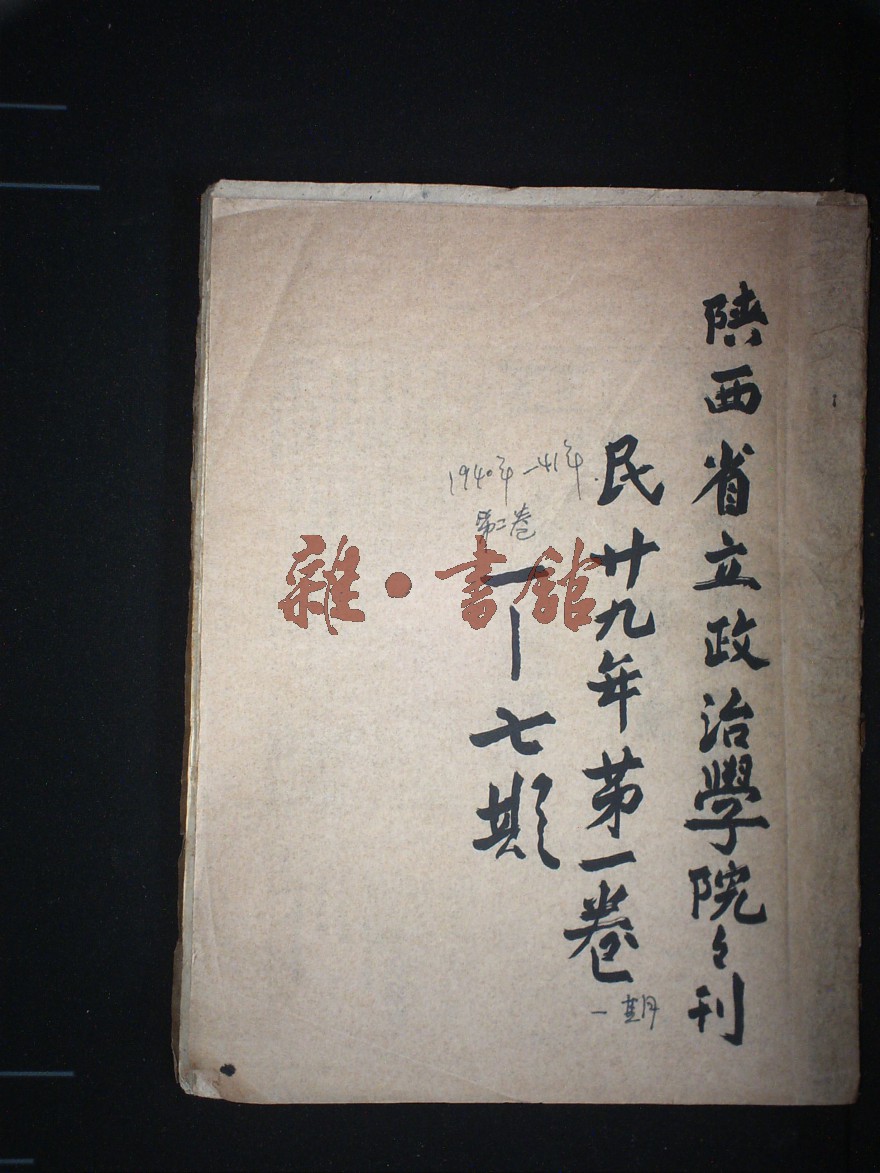 陝西省立政治學院々刊
民廿九年第一卷
一期
1940年—41年
第二卷
一—七期
雜·書館